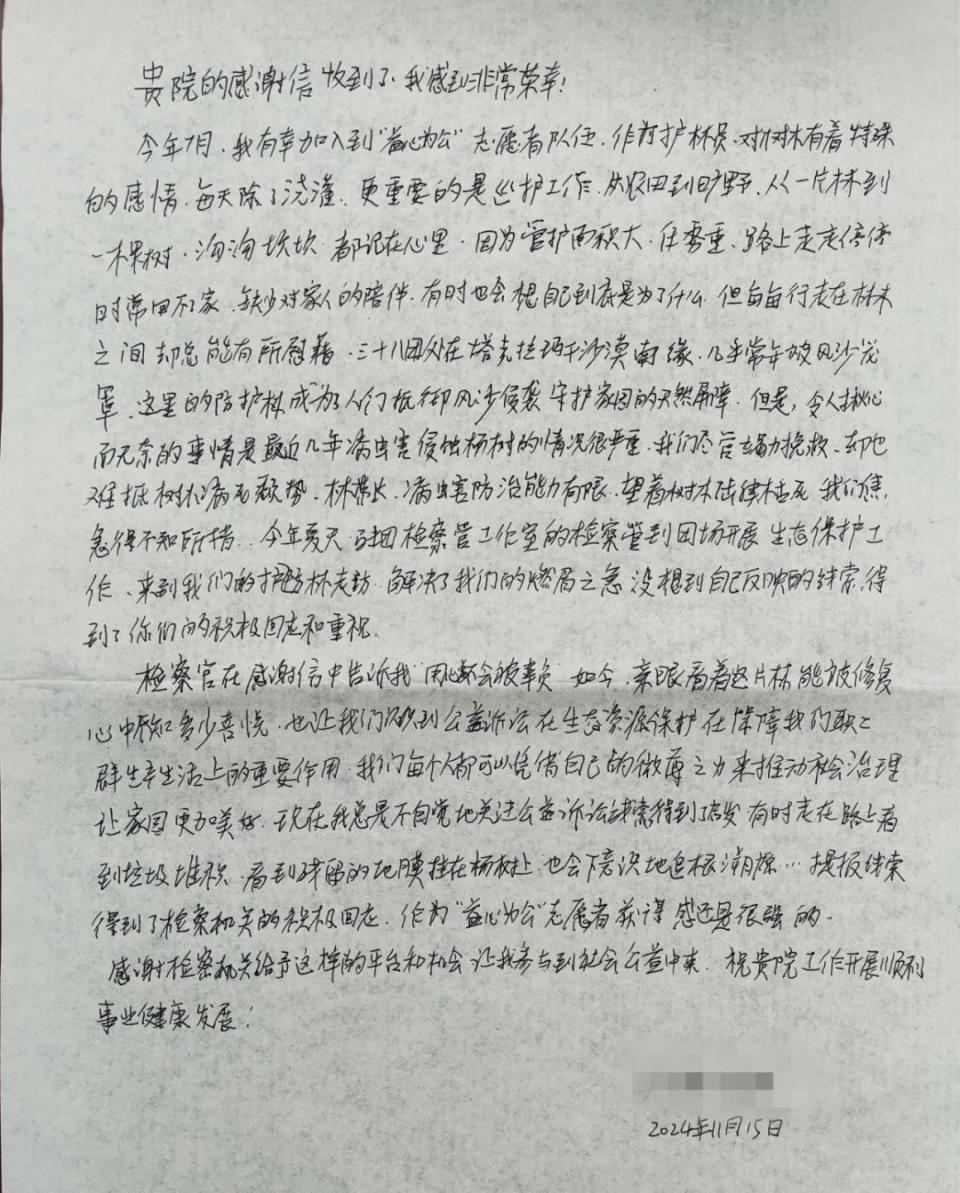 贵院的感谢信收到了，我感到非常荣幸！
今年7月，我有幸加入到“益心为公”志愿者队伍，作为护林员、对树木有着特殊
的感情，每天除了浇灌、更重要的是巡护工作，从农田到旷野、从一片林到
一棵树，沟沟坎坎都记在心里，因为管护面积大，任务重、路上走走停停
时常回不了家，缺少对家人的陪伴，有时也会想自己到底是为了什么，但每每行走在林木
之间却总能有所慰藉，三十八团处在塔克拉玛干沙漠南缘，几乎常年被风沙笼
罩，这里的防护林成为了人们抵御风沙侵袭守护家园的天然屏障，但是，令人揪心
而无奈的事情是最近几年病虫害侵蚀杨树的情况很严重，我们尽管竭力挽救、却也
难抵树木病死颓势，林带长、病虫害防治能力有限，望着树木陆续枯死我们焦
急得不知所措，今年夏天 团检察官工作室的检察官到团场开展生态保护工
作、来到我们的 林走访，解决了我们的燃眉之急没想到自己反映的线索，得
到了你们的积极回应和重视。
检察官在感谢信中告诉我“用心都会被 ”如今，亲眼看着这片林能被修复
心中 多少喜悦，也让我们认识到公益诉讼在生态资源保护在保障我们职工
群众生产生活上的重要作用，我们每个人都可以凭借自己的微薄之力来推动社会治理
让家园更加美好，现在我总是不自觉地关注公益诉讼线索得到了启发有时走在路上看
到垃圾堆积，看到残留的地膜挂在杨树上，也会下意识地追根溯源…提报线索
得到了检察机关的积极回应，作为“益心为公”志愿者获得感还是很强的。
感谢检察机关给予这样的平台和机会让我参与到社会公益中来，祝贵院工作开展顺利
事业健康发展！
2024年11月15日